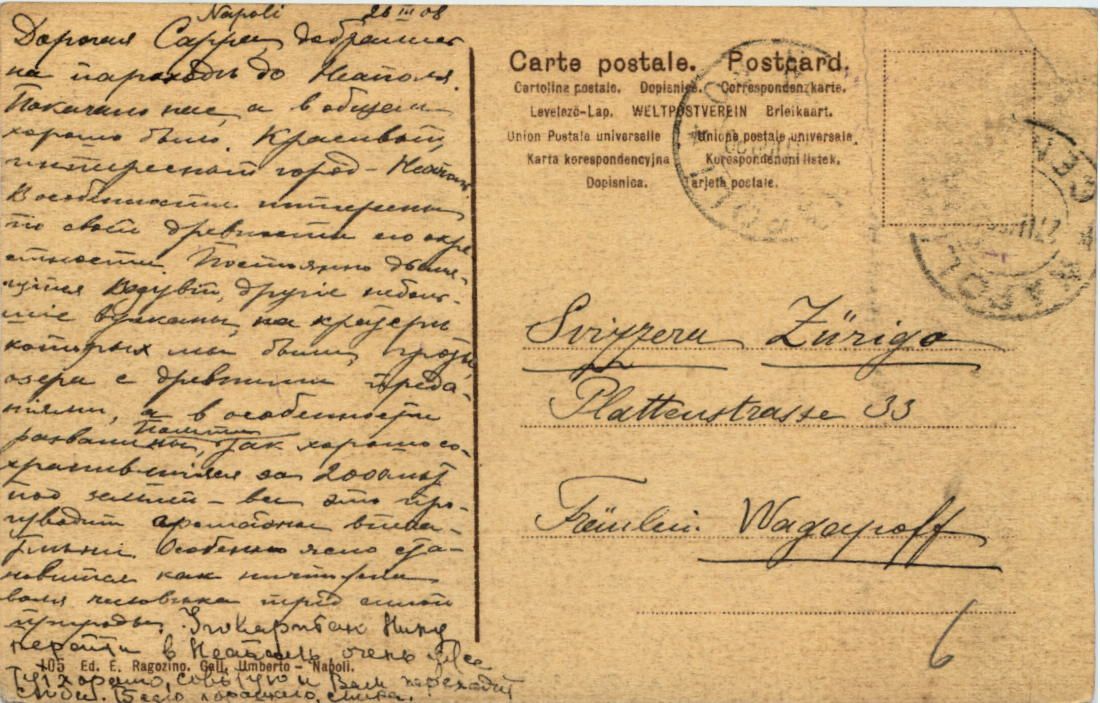 Napoli 26 III 08
Дорогая Сарра, добрались
на пароходѣ до Неаполя.
Покачало нас, а в общем
хорошо было. Красивый,
интересный город - Неаполь
В особенности интересны
по своей древности его окре
стности. Постоянно дымя-
щийся Везувій, другіе неболь-
шіе вулканы, на кратеры
которых мы были, гроты,
озера с древними преда-
ніями, а в особенности
развалины Помпеи, так хорошо со-
хранившіяся за 2000 лѣт
под землей - все это про-
изводит громадное впеча-
тлѣніе. Особенно ясно ста-
новится как ничтожна
воля человѣка пред силой
природы.
перейти в Неаполь очень
Тут хорошо, совѣтую и Вам переходить
сюда.
105 Ed. E. Ragozino. Gall. Umberto - Napoli.
Carte postale. Postcard.
Cartolina postale. Dopisnice. Correspondenzkarte.
Levelezö-Lap. WELTPOSTVEREIN Briefkaart.
Union Postale universelle Unione postale universale
Karta korespondencyjna Korespondencni listek.
Dopisnica. Tarjeta postale.
NAPOLI
NAPOLI
Svizzera Zürigo
Plattenstrasse 33
Fräulein Wagapoff
6